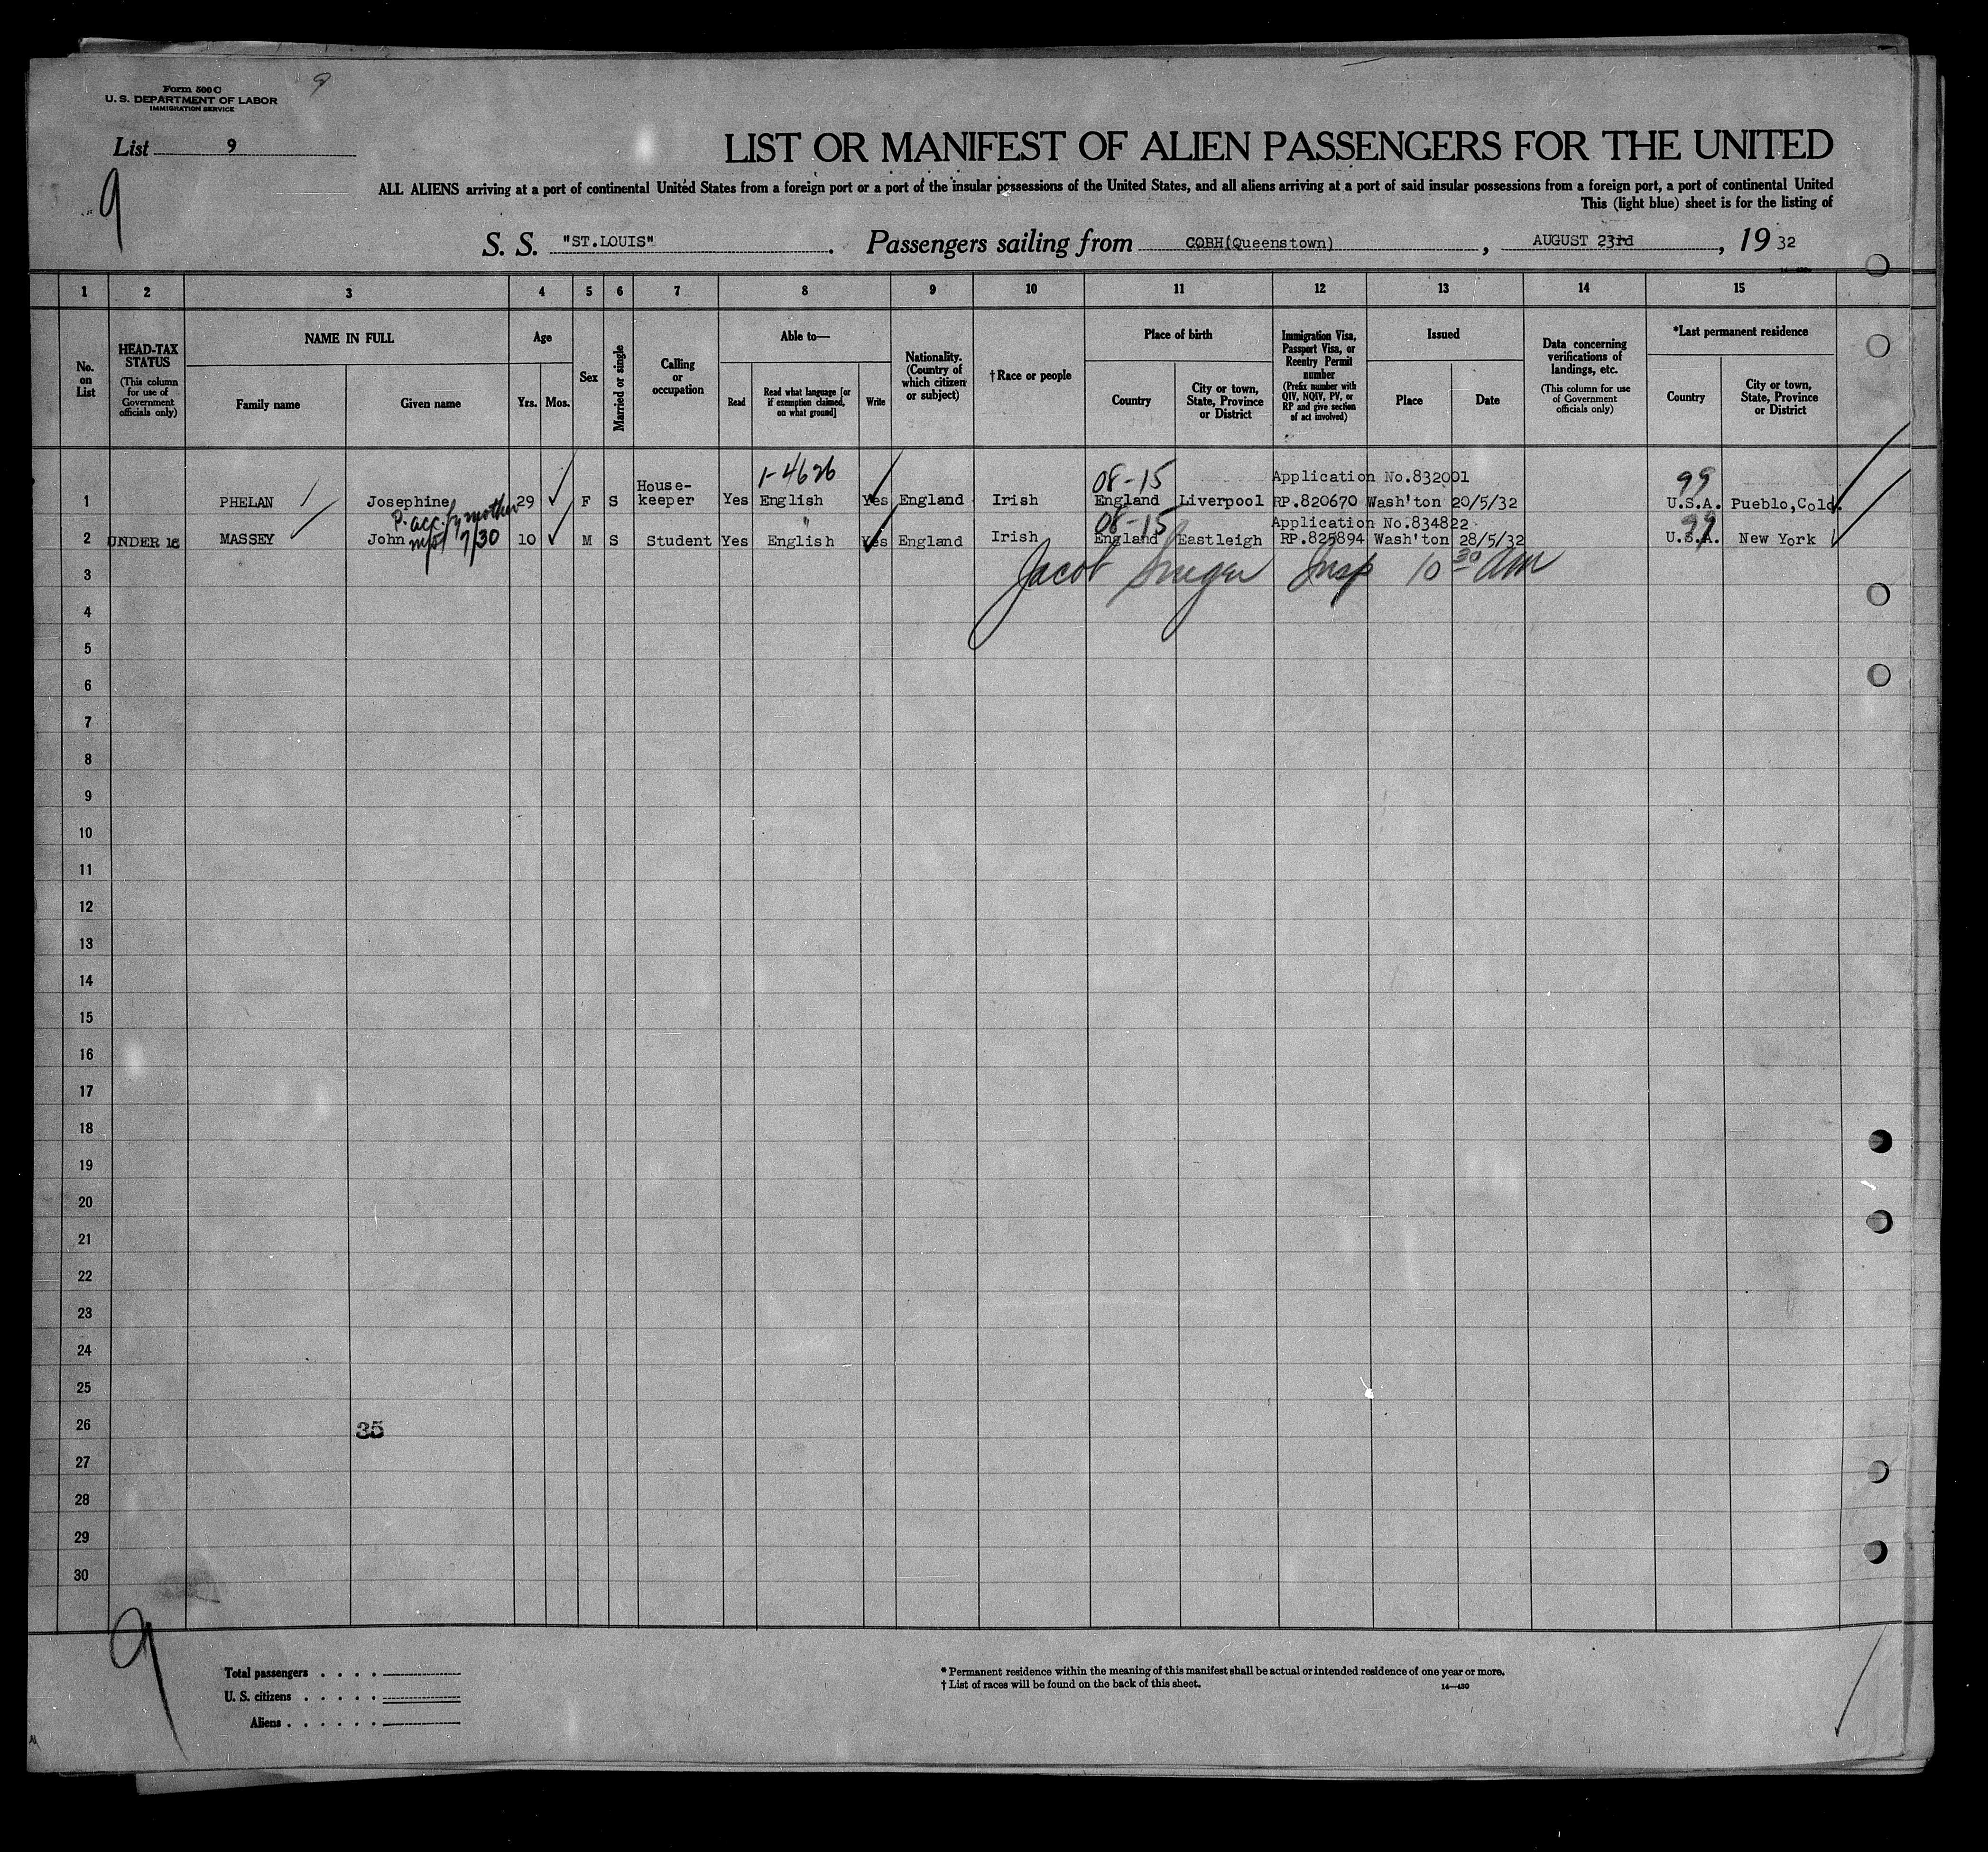 Form 500 C
U. S. DEPARTMENT OF LABOR
IMMIGRATION SERVICE
9
List 9
9
LIST OR MANIFEST OF ALIEN PASSENGERS FOR THE UNITED
ALL ALIENS arriving at a port of continental United States from a foreign port or a port of the insular possessions of the United States, and all aliens arriving at a port of said insular possessions from a foreign port, a port of continental United
This (light blue) sheet is for the listing of
S. S. "ST.LOUIS". Passengers sailing from COBH(Queenstown), AUGUST 23rd, 1932
14—430
1 2 3 4 5 6 7 8 9 10 11 12 13 14 15
No. on List
HEAD-TAX STATUS
(This column for use of Government officials only)
NAME IN FULL
Family name
Given name
Age
Yrs. Mos.
Sex
Married or single
Calling or occupation
Able to—
Read
Read what language [or if exemption claimed, on what ground]
Write
Nationality. (Country of which citizen or subject)
†Race or people
Place of birth
Country
City or town, State, Province or District
Immigration Visa, Passport Visa, or Reentry Permit number
(Prefix number with QIV, NQIV, PV, or RP and give section of act involved)
Issued
Place
Date
Data concerning verifications of landings, etc.
(This column for use of Government officials only)
*Last permanent residence
Country
City or town, State, Province or District
1-4626 08-15 Application No.832001 99
1 PHELAN Josephine 29 F S House-keeper Yes English Yes England Irish England Liverpool RP.820670 Wash'ton 20/5/32 U.S.A. Pueblo,Cold.
acc. by mother " 08-15 Application No.834822 99
2 UNDER 16 MASSEY John 7/30 10 M S Student Yes English Yes England Irish England Eastleigh RP.825894 Wash'ton 28/5/32 U.S.A. New York
3 Jacob Insp 10 30 AM
4
5
6
7
8
9
10
11
12
13
14
15
16
17
18
19
20
21
22
23
24
25
26 35
27
28
29
30
9
Total passengers . . . .
U. S. citizens . . . . .
Aliens . . . . . .
* Permanent residence within the meaning of this manifest shall be actual or intended residence of one year or more.
† List of races will be found on the back of this sheet. 14—430